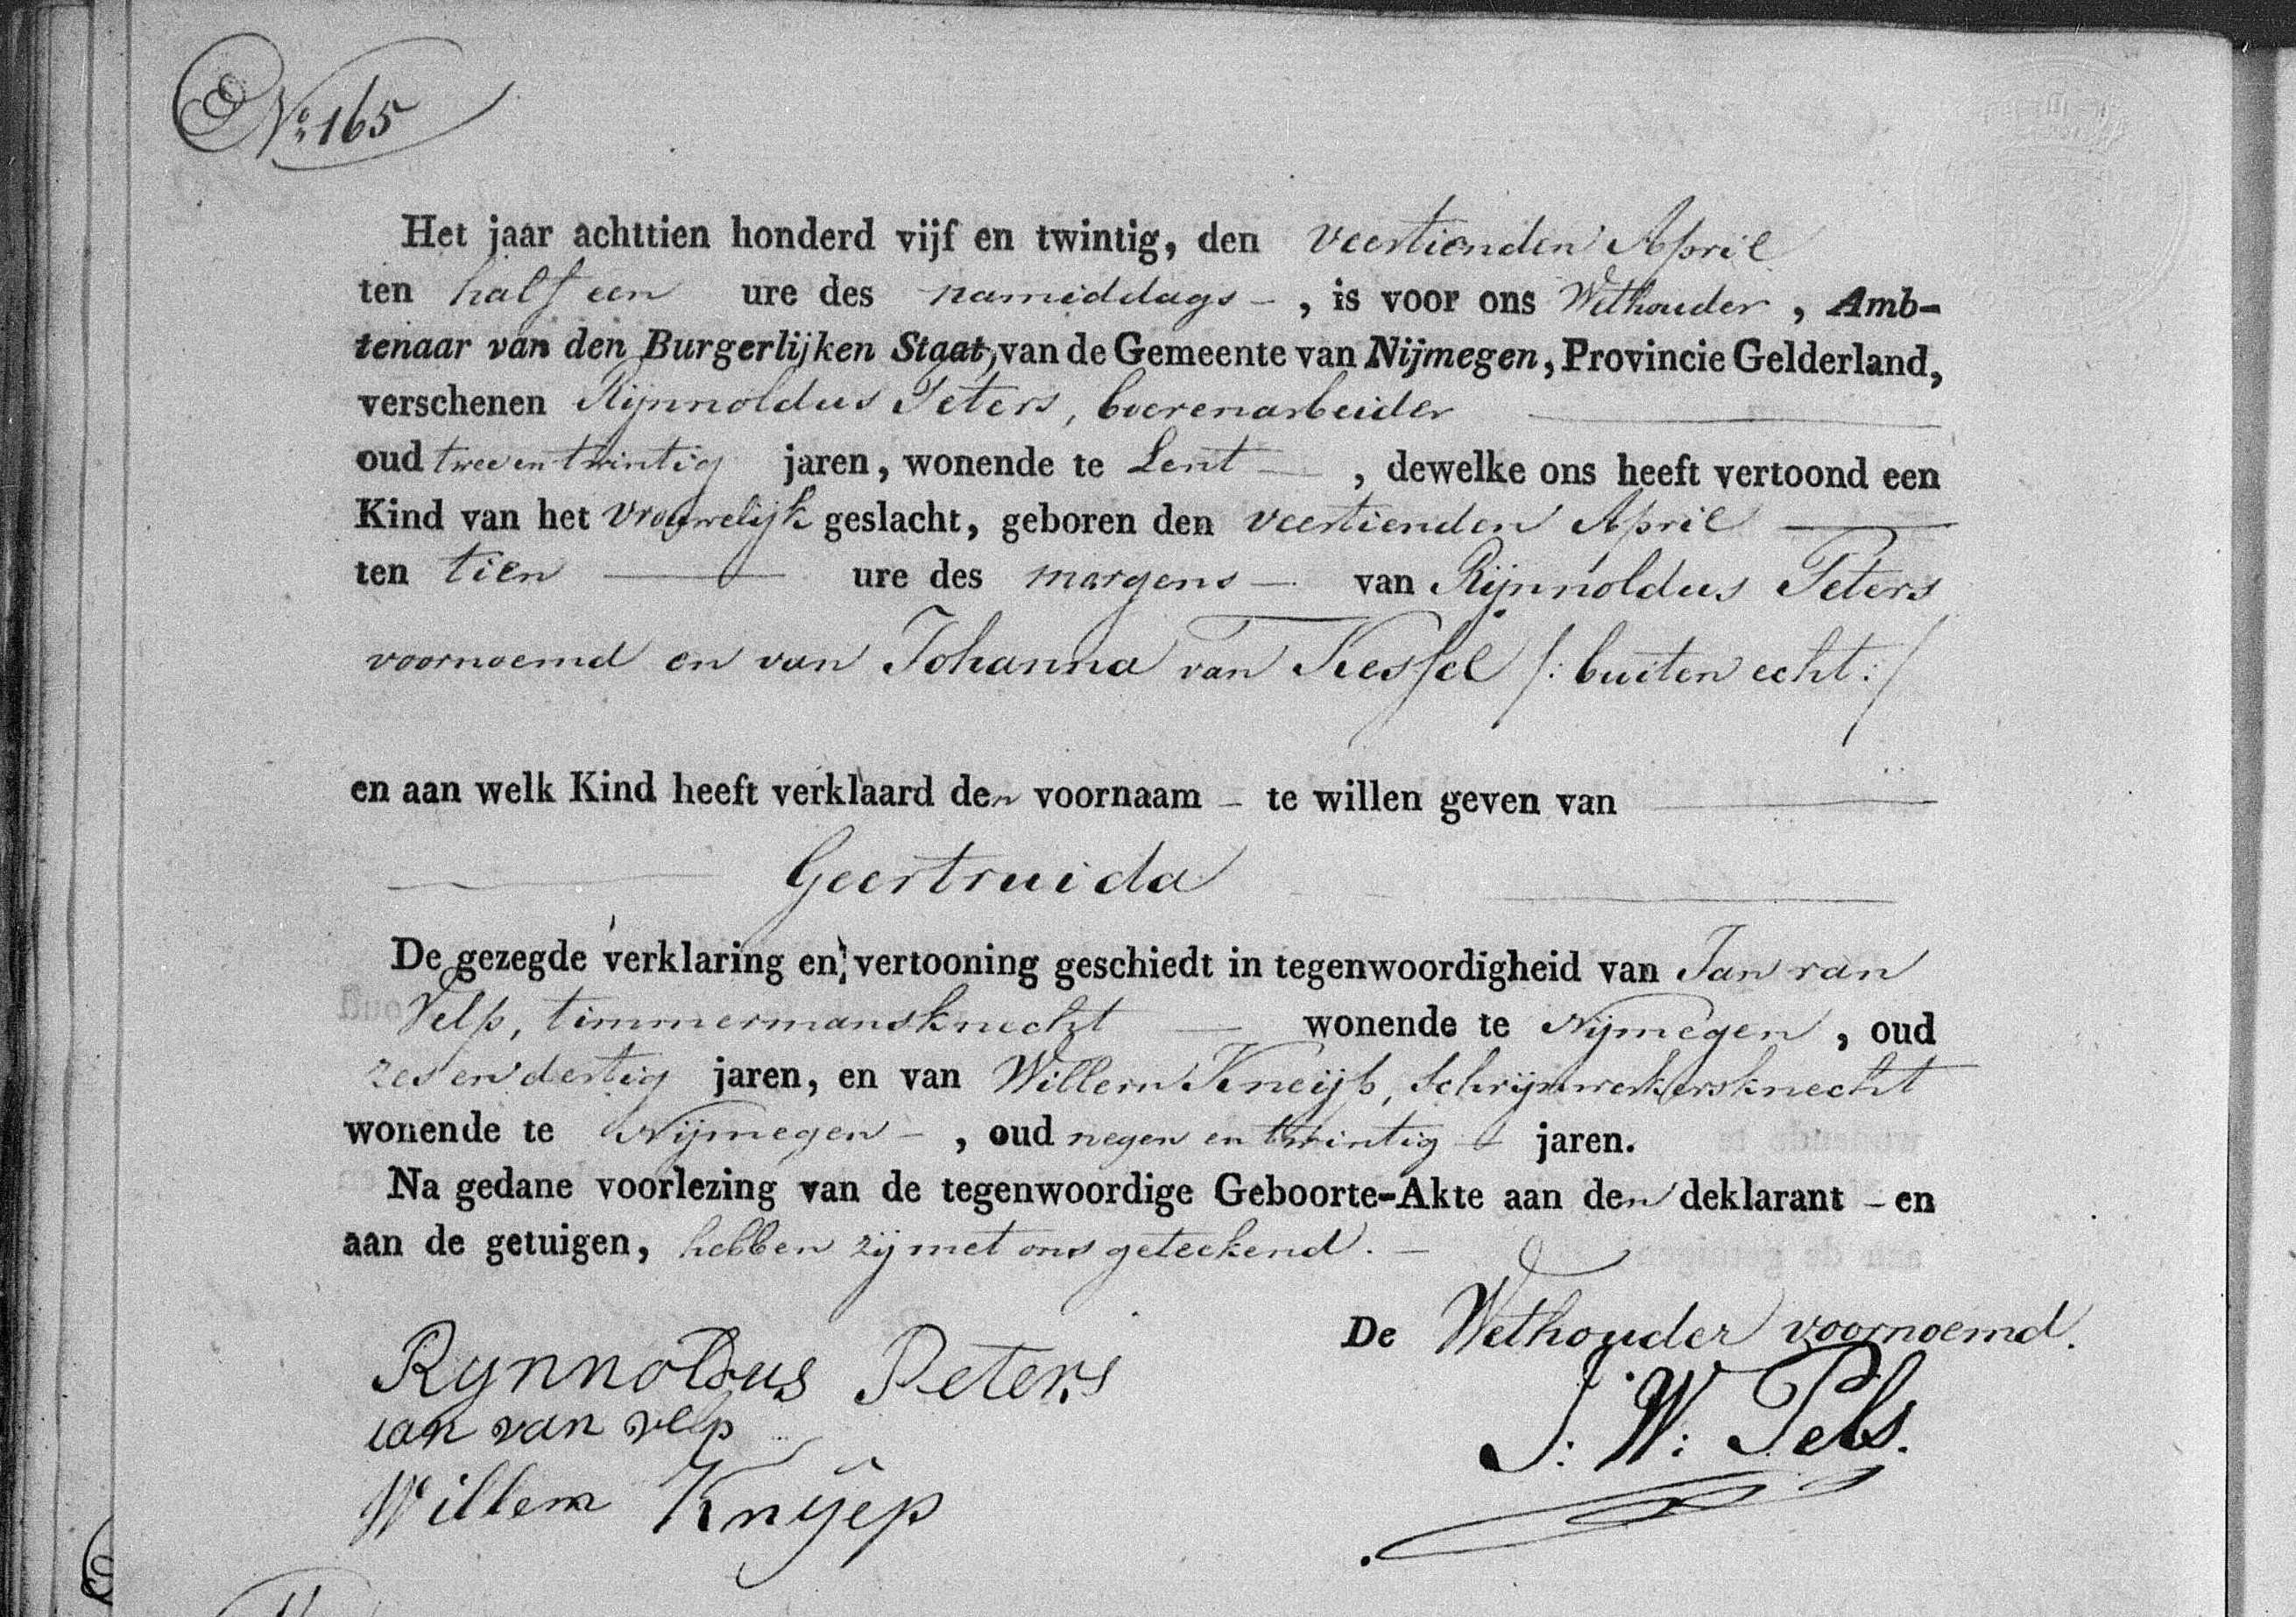 No. 165
Het jaar achttien honderd vijf en twintig, den veertienden April
ten half een ure des namiddags - , is voor ons Wethouder , Amb-
tenaar van den Burgerlijken Staat, van de Gemeente van Nijmegen, Provincie Gelderland,
verschenen Rijnnoldus Peters, boerenarbeider
oud twee en twintig jaren, wonende te Lent - , dewelke ons heeft vertoond een
Kind van het vrouwelijk geslacht, geboren den veertienden April
ten tien ure des morgens - van Rijnnoldus Peters
voornoemd en van Johanna van Kessel /: buiten echt :/
en aan welk Kind heeft verklaard den voornaam - te willen geven van
Geertruida
De gezegde verklaring en vertooning geschiedt in tegenwoordigheid van Jan van
Velp, timmermansknecht - wonende te Nijmegen , oud
zes en dertig jaren, en van Willem Kneijp, schrijnwerkersknecht
wonende te Nijmegen - , oud negen en twintig - jaren.
Na gedane voorlezing van de tegenwoordige Geboorte-Akte aan den deklarant - en
aan de getuigen, hebben zij met ons geteekend. -
De Wethouder voornoemd.
Rynnoldus Peters
J: W: Pels.
ian van velp
Willem Knÿep